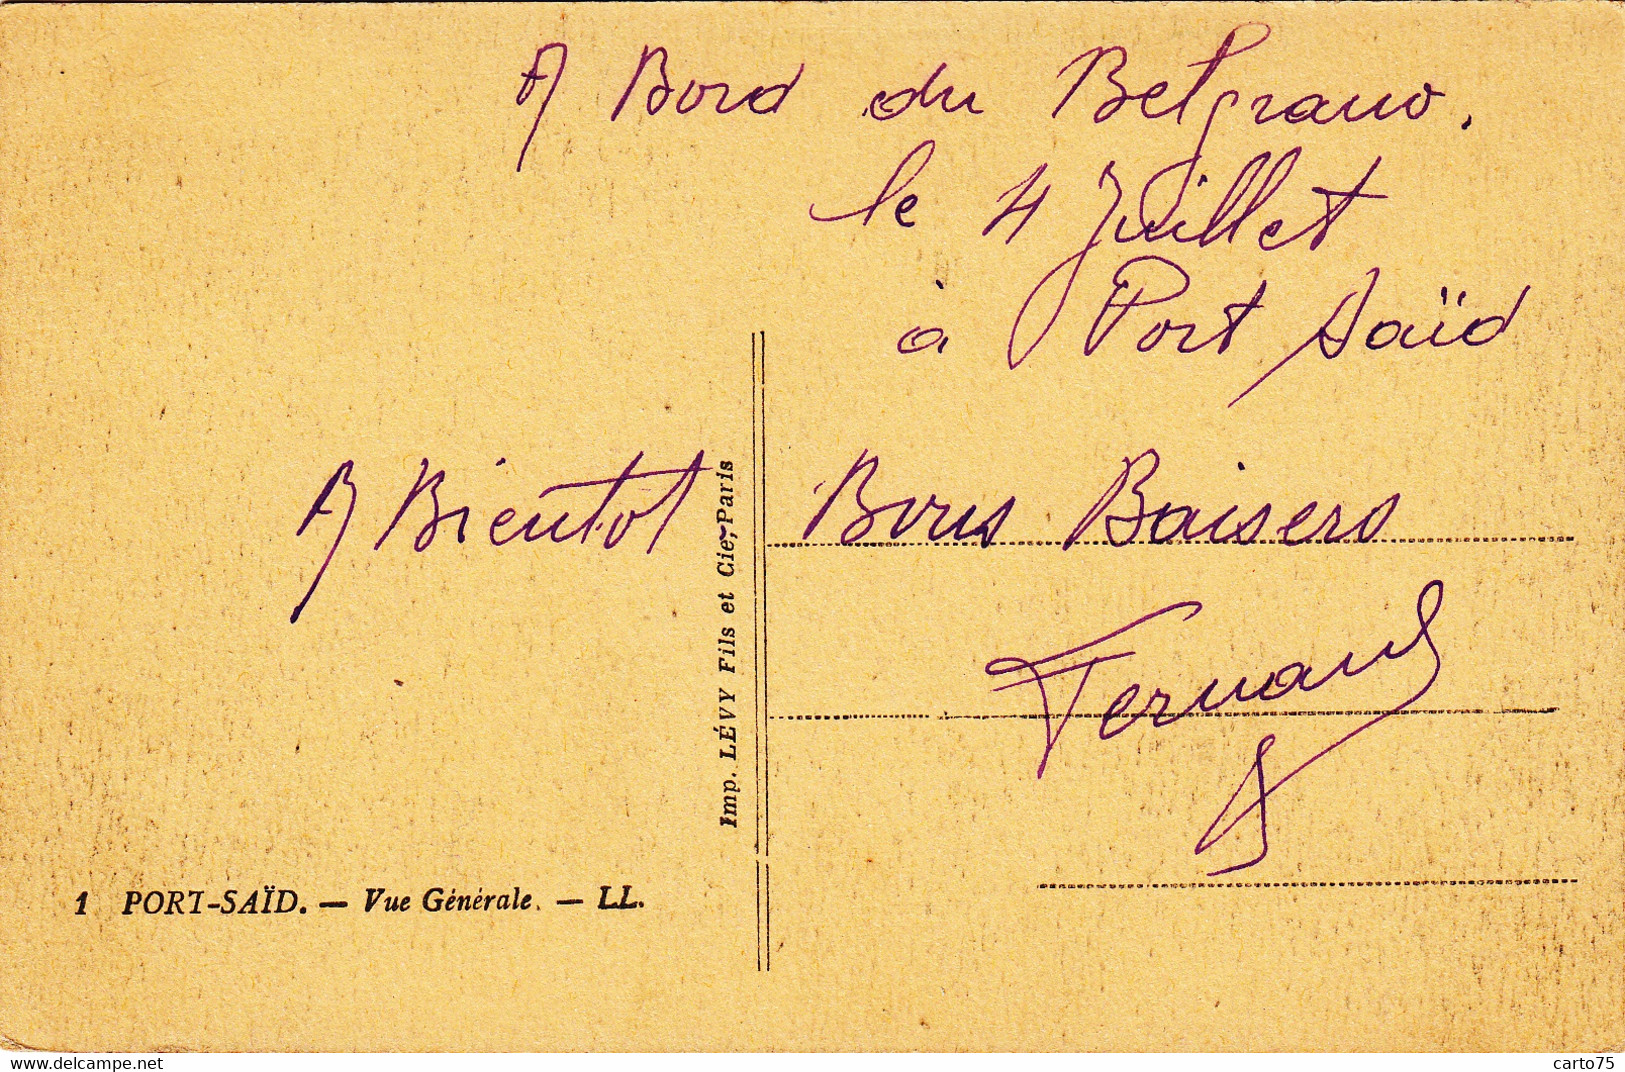 A Bord du Belgrano.
le 4 Juillet
à Port Saïd
A Bientot Bons Baisers
Fernand
Imp. LÉVY Fils et Cie, Paris
1 PORT-SAÏD. — Vue Générale. — LL.
https://www.delcampe.net
carto75